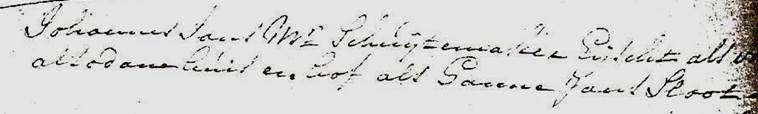 Johannes Jans Mr Schuijtemaker Eijscht als
alsodane huis en hof als Sanne Jans Sloot